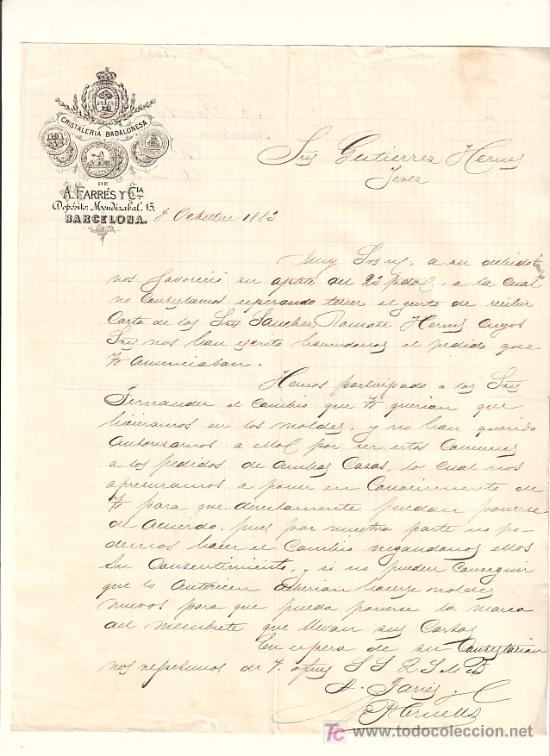 CRISTALERIA BADALONESA
DE
A. FARRÉS Y Cía
Depósito: Mendizabal, 15.
BARCELONA.
8 Octubre 1883
Sres Gutierrez Hermos
Jerez
Muy Sres ns: a su debido tiempo
nos favoreció su apble del 25 pdo, a la cual
no contestamos esperando tener el gusto de recibir
Carta de los Sres Sanchez Romate Hermos cuyos
Sres nos han escrito haciendonos el pedido que
V anunciaban.
Hemos participado a los Sres
Fernandez el cambio que V querian que
hicieramos en los moldes, y no han querido
autorizarnos a ello por ser estos Comunes
a los pedidos de ambas Casas, lo cual nos
apresuramos a poner en Conocimiento de
V para que directamente puedan ponerse
de acuerdo, pues por nuestra parte no po-
demos hacer el Cambio negandonos ellos
su Consentimiento, si no pueden conseguir
que lo autoricen deberian hacerse moldes
nuevos para que pueda ponerse la marca
del membrete que llevan sus Cartas
En espera de su Contestacion
nos repetimos de V. afmos S S Q S M B
A. Farrés y C
www.todocoleccion.net